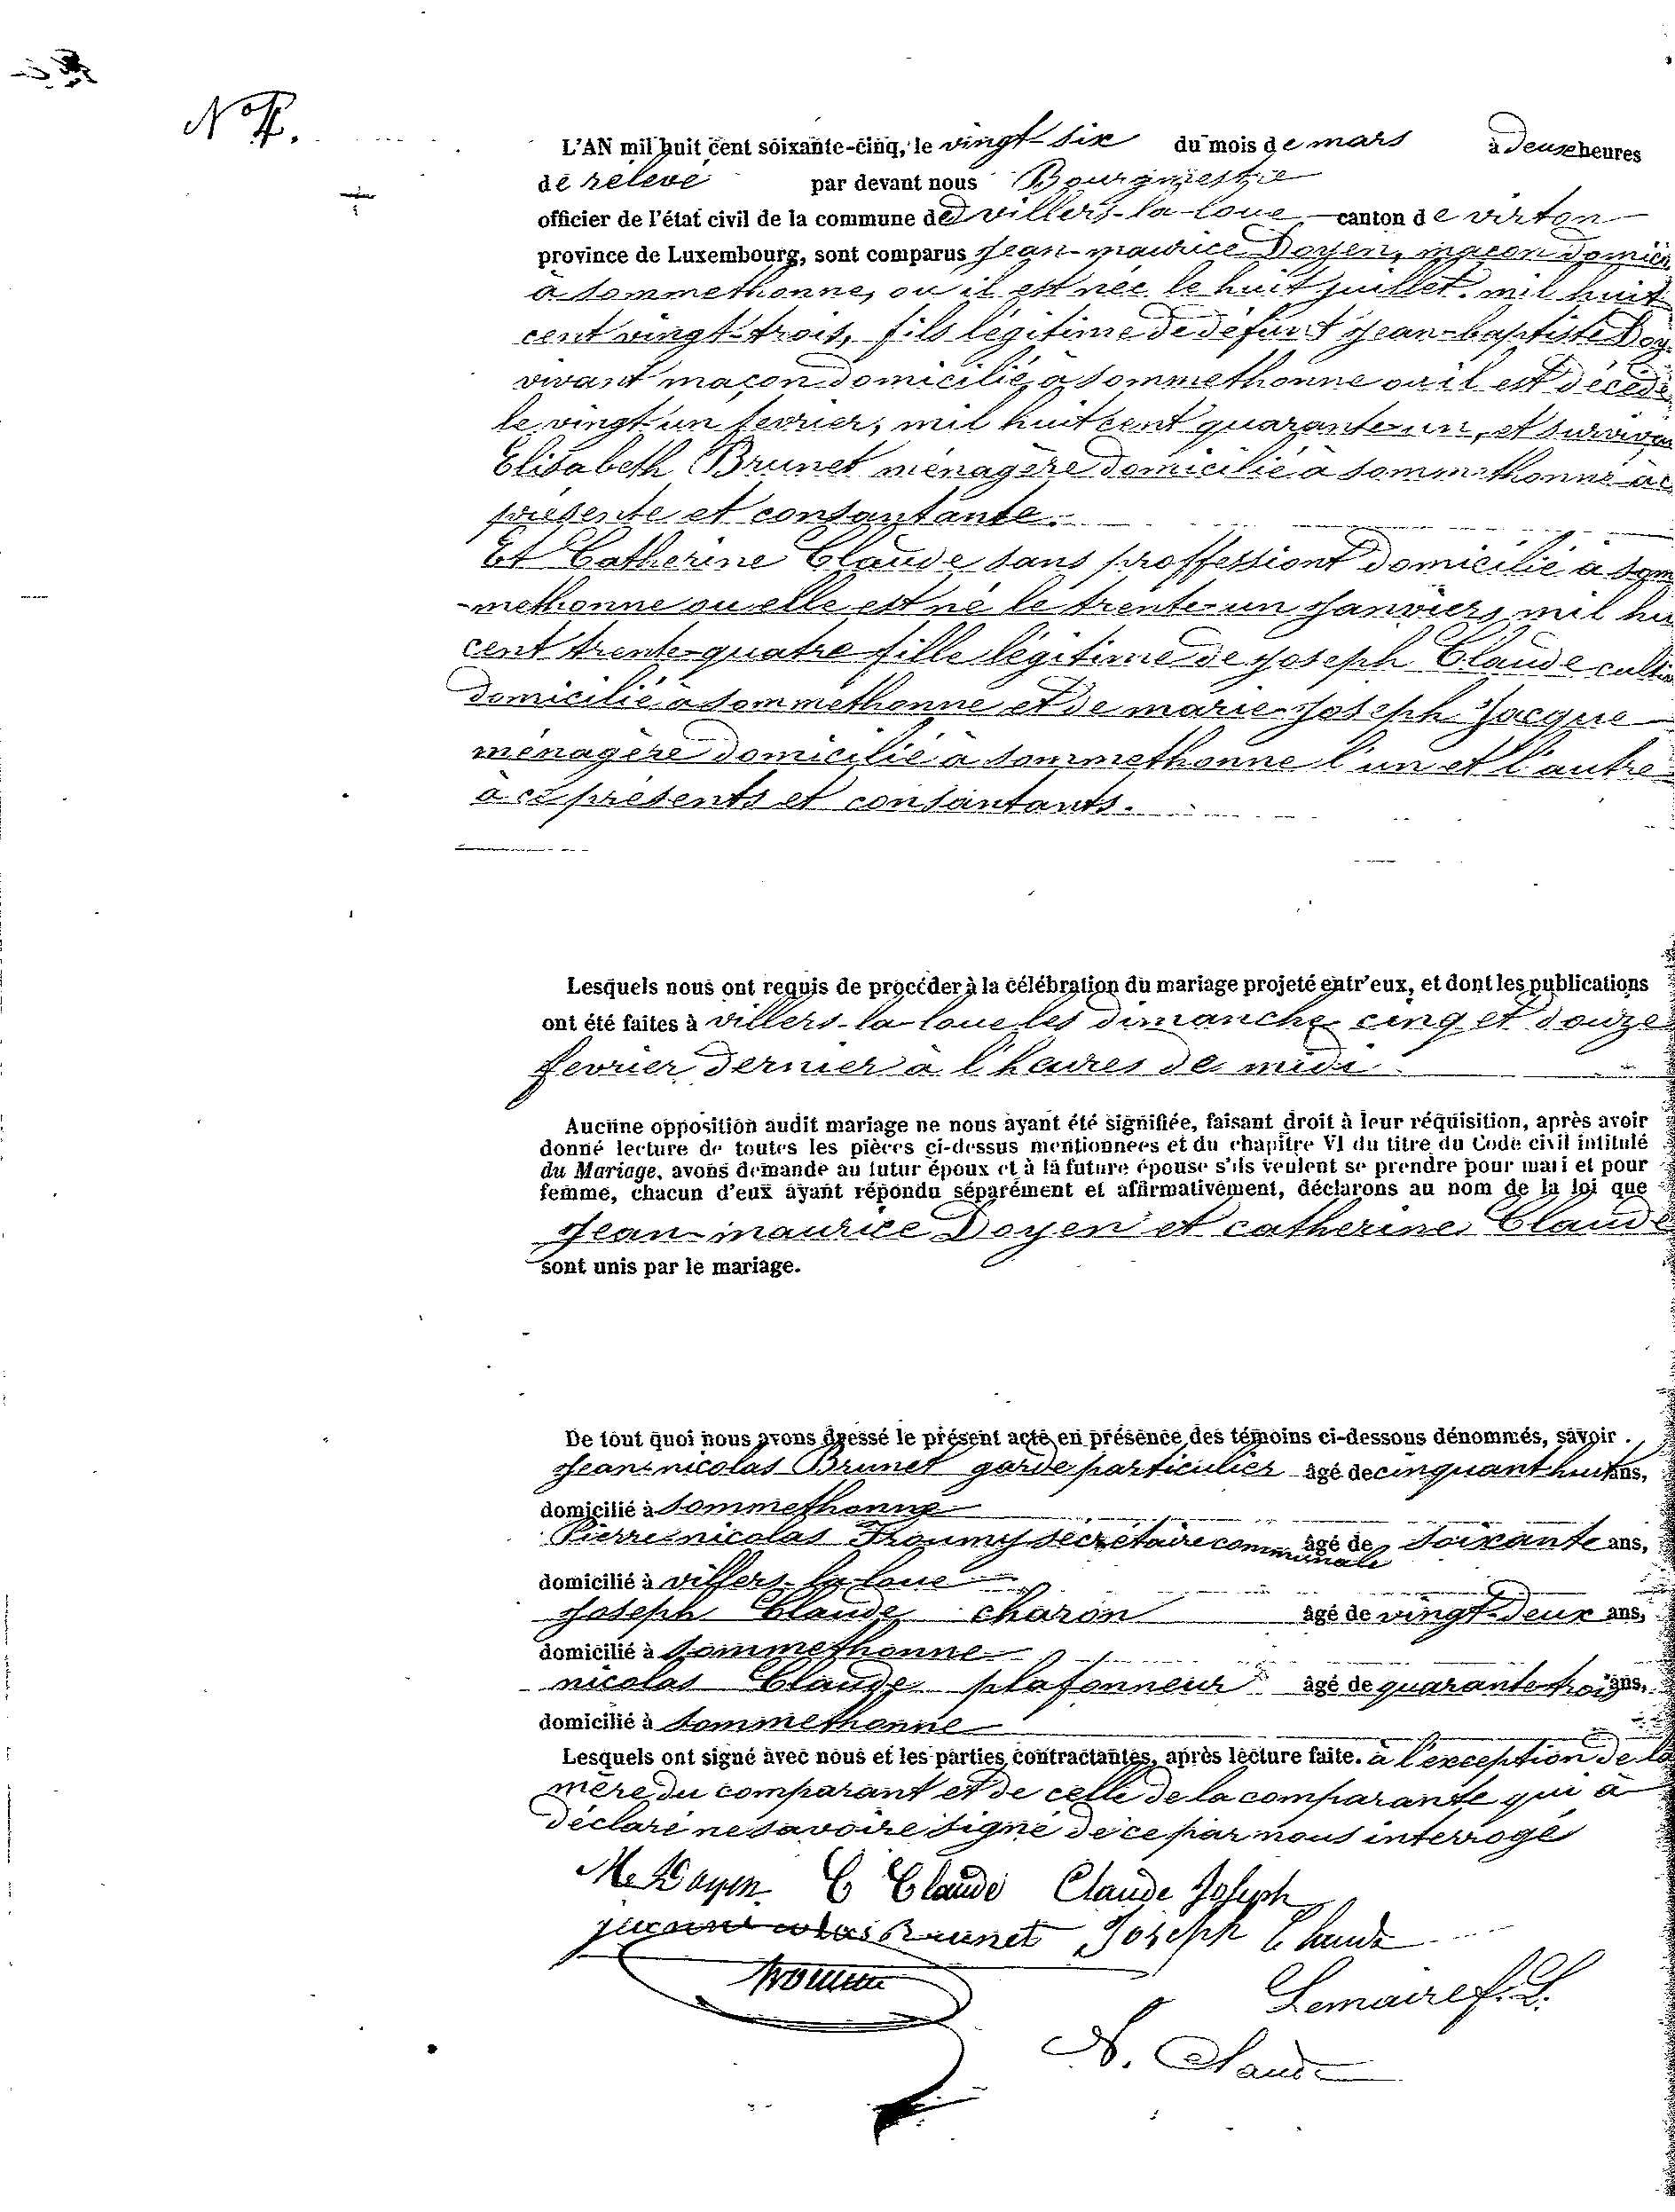 N° 4.
L'AN mil huit cent soixante-cinq, le vingt-six du mois de mars à Deux heures
de relevé par devant nous Bourgmestre
officier de l'état civil de la commune de villers-la-loue canton de virton
province de Luxembourg, sont comparus Jean-maurice Doyen, maçon domici
à Sommethonne, ou il est née le huit juillet mil huit
cent vingt-trois, fils légitime de défunt Jean-baptiste Doy
vivant maçon domicilié à Sommethonne ou il est décédé
le vingt-un fevrier, mil huit cent quarante-un, et survivan
Elisabeth Brunet ménagère domicilié à Sommethonne à c
présente et consantante.
Et Catherine Claude sans proffessiont domicilié à Som
-methonne ou elle est né le trente-un Janviers mil hu
cent trente-quatre fille légitime de Joseph Claude culti
domicilié à Sommethonne et de marie-Joseph Jacque
ménagère domicilié à Sommethonne l'un et l'autre
à ce présents et consantants.
Lesquels nous ont requis de procéder à la célébration du mariage projeté entr'eux, et dont les publications
ont été faites à villers-la-loue les dimanche cinq et douze
fevrier dernier à l'haures de midi
Aucune opposition audit mariage ne nous ayant été signifiée, faisant droit à leur réquisition, après avoir
donné lecture de toutes les pièces ci-dessus mentionnees et du chapitre VI du titre du Code civil intitulé
du Mariage, avons demande au futur époux et à la future épouse s'ils veulent se prendre pour mari et pour
femme, chacun d'eux ayant répondu séparément et affirmativement, déclarons au nom de la loi que
Jean-maurice Doyen et catherine Claude
sont unis par le mariage.
De tout quoi nous avons dressé le présent acte en présence des témoins ci-dessous dénommés, savoir.
Jean-nicolas Brunet garde particulier âgé de cinquant huit ans,
domicilié à Sommethonne
Pierre-nicolas Froumy secrétaire communale âgé de soixante ans,
domicilié à villers-la-loue
Joseph Claude charon âgé de vingt-Deux ans,
domicilié à Sommethonne
nicolas Claude plafonneur âgé de quarante-trois ans,
domicilié à Sommethonne
Lesquels ont signé avec nous et les parties contractantes, après lecture faite. à l'exception de la
mère du comparant et de celle de la comparante qui à
déclaré ne savoire signé de ce par nous interrogé
M. Doyen C Claude Claude Joseph
jean nicolas Brunet Joseph Claude
Lemaire f. L.
N. Claude